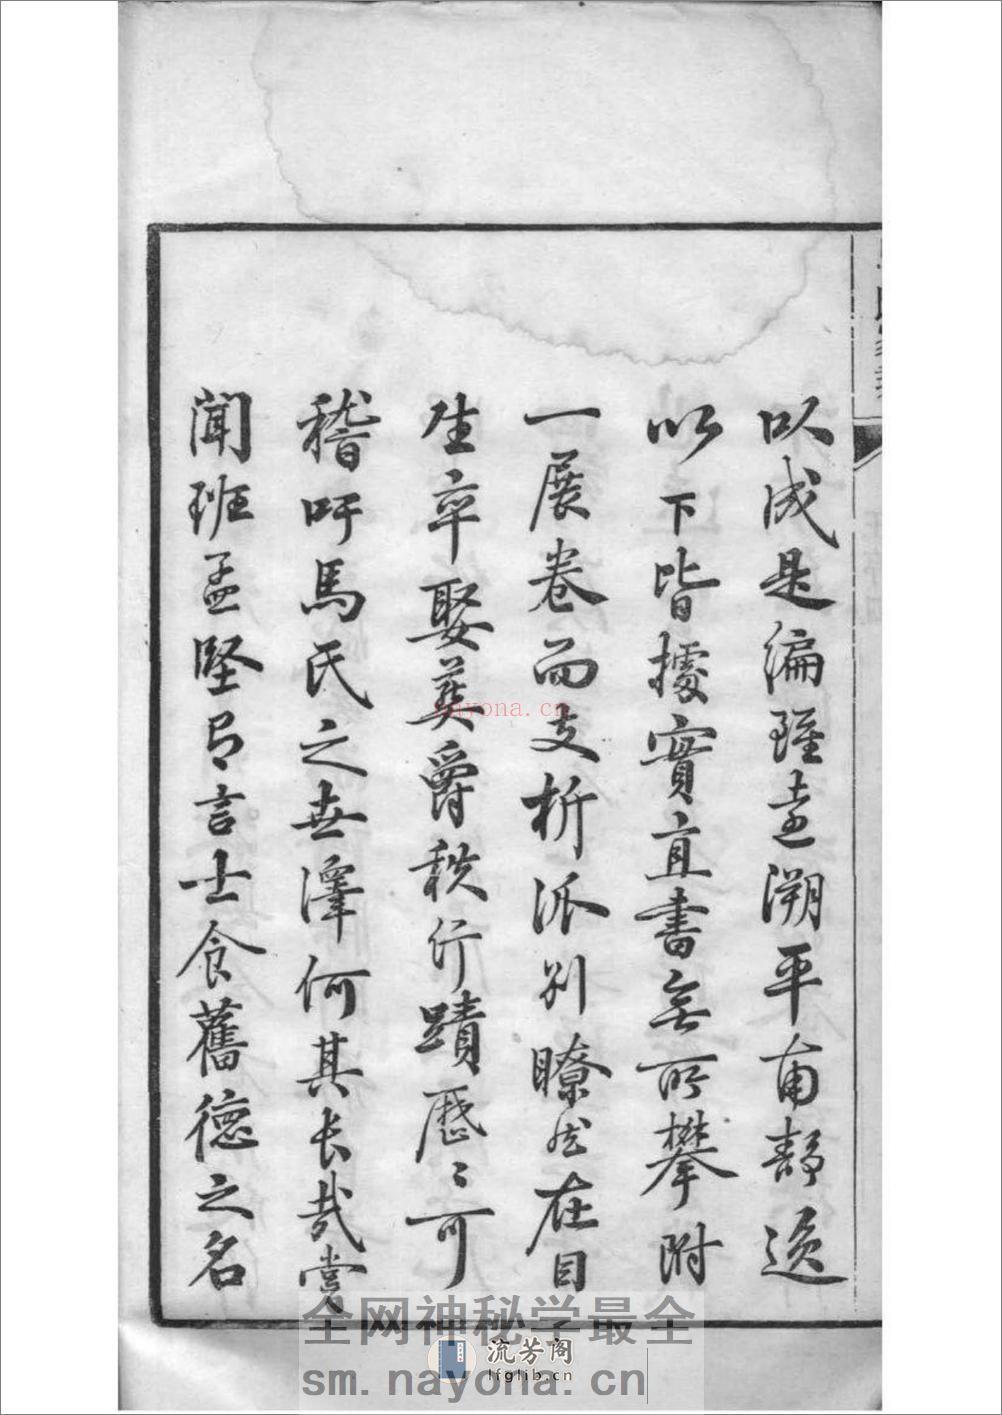 以成是編雖遠溯平甫靜逸
以下皆據實直書無所攀附
一展卷而支析派別瞭然在目
生卒娶葬爵秩行蹟歷〻可
稽吁馬氏之世澤何其長哉嘗
聞班孟堅有言士食舊德之名
nayona.cn
全网神秘学最全
流芳阁
lfglib.cn
sm.nayona.cn